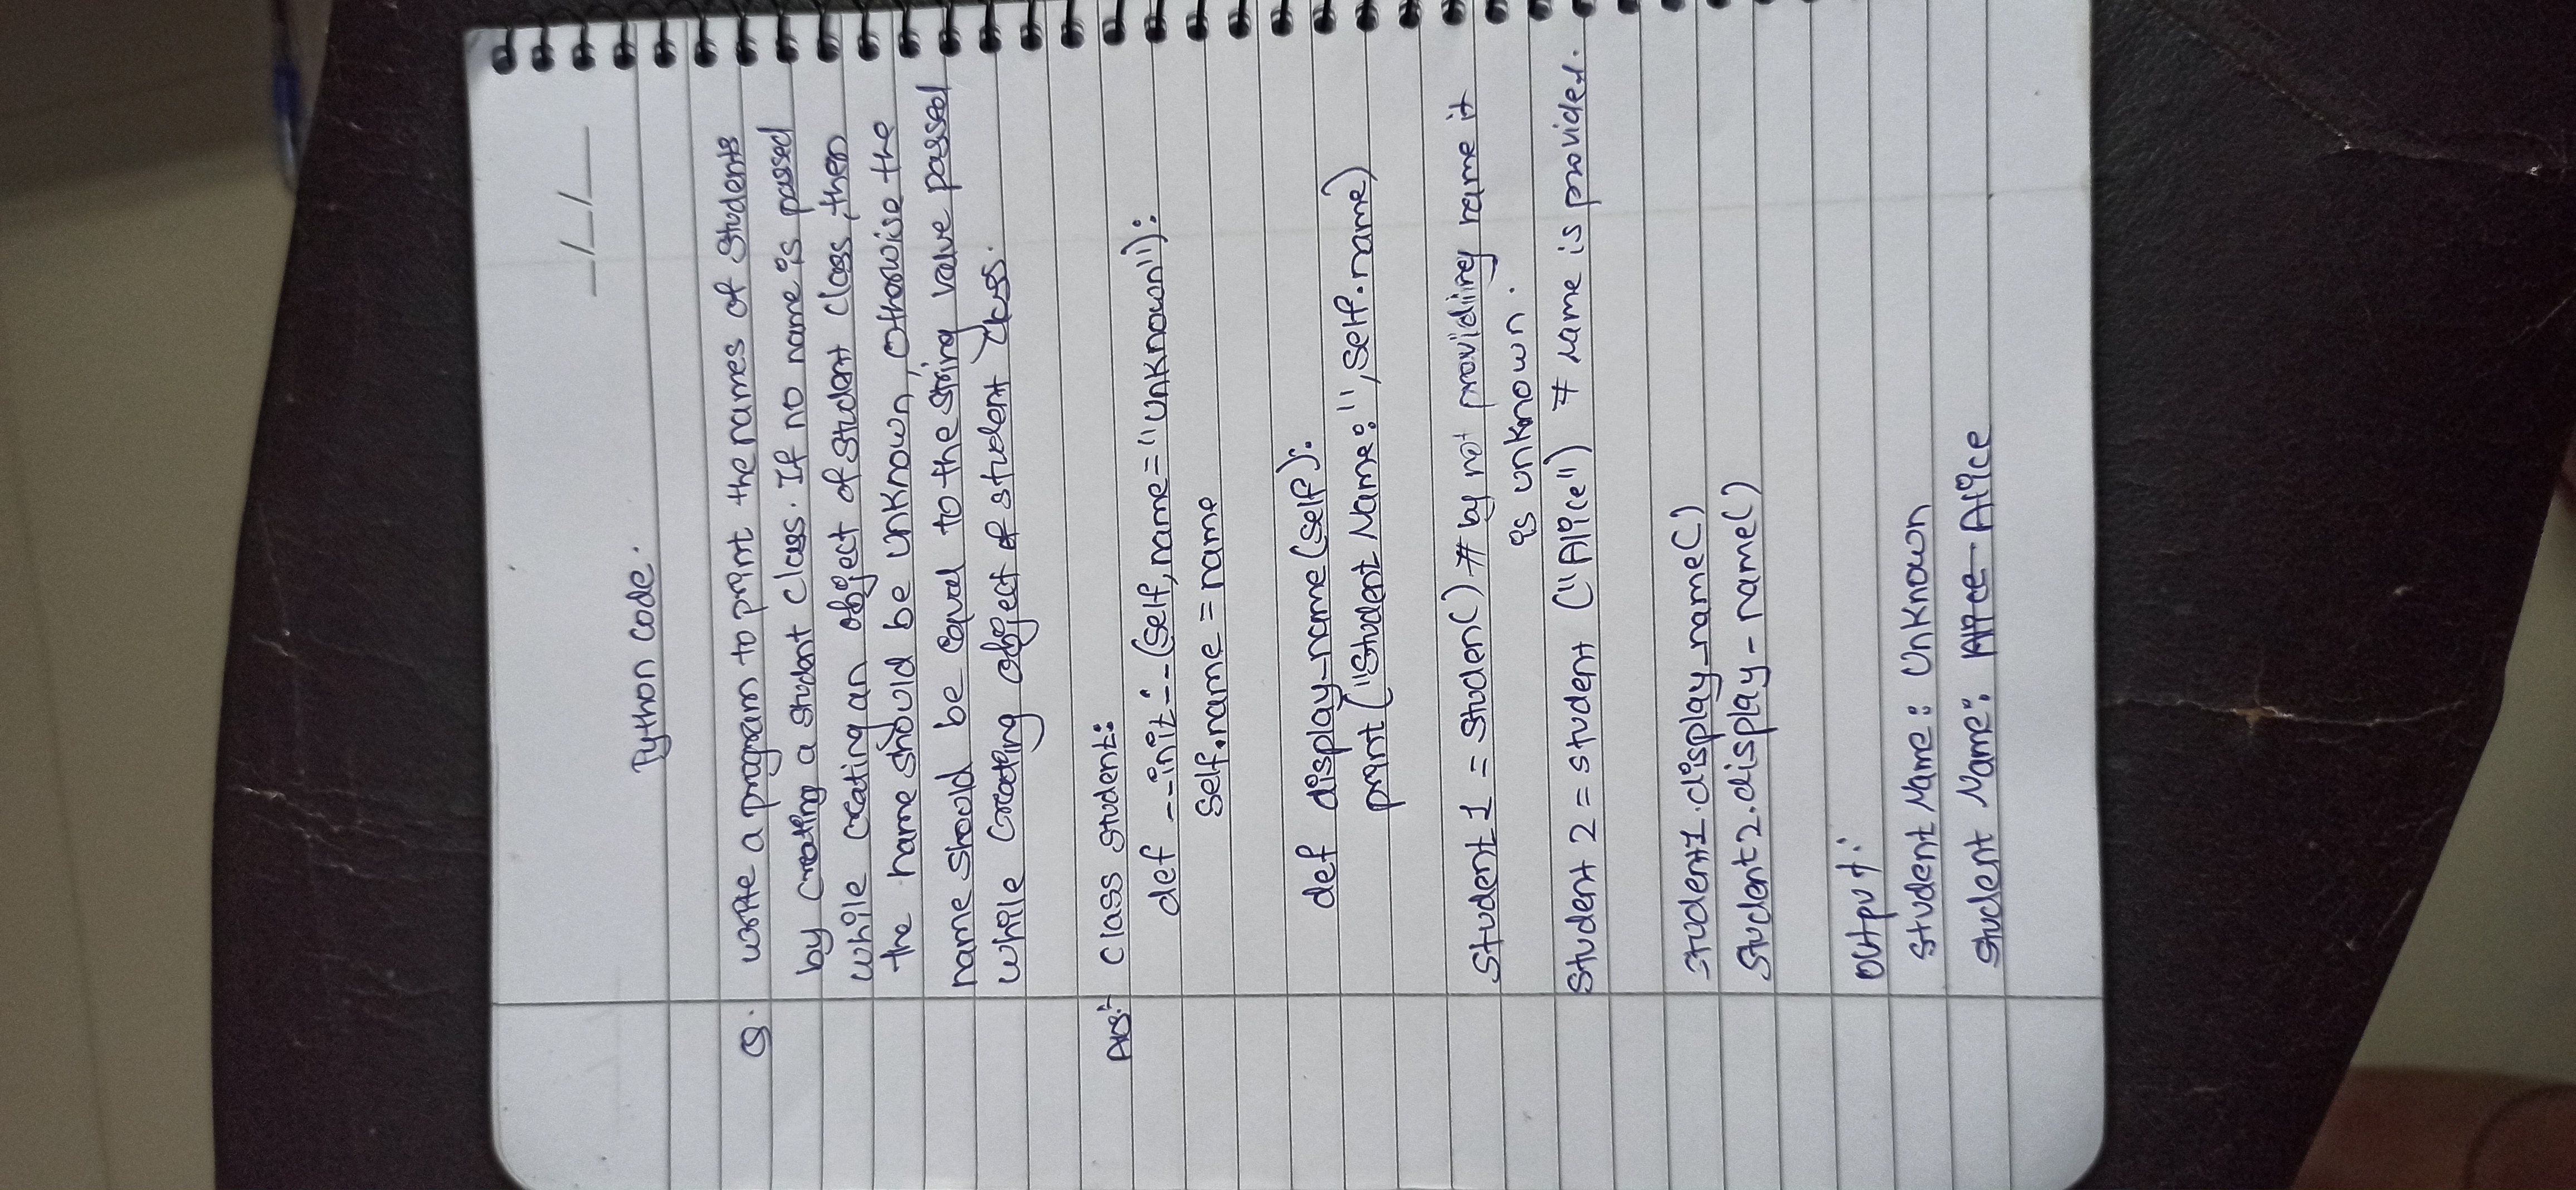 _/_/__
Python code.
Q. write a program to print the names of students
by creating a student class. If no name is passed
while creating an object of student class, then
the name should be unknown, otherwise the
name should be equal to the string value passed
while Creating object of student class.
Ans:- class student:
def __init__(self, name="Unknown"):
self.name = name
def display_name(self):
print("Student Name:", self.name)
Student 1 = Studen() # by not providiing name it
is unknown.
Student 2 = student ("Alice") # name is provided.
student1.display_name()
Student2.display_name()
Output:
Student Name: Unknown
Student Name: Alice Alice